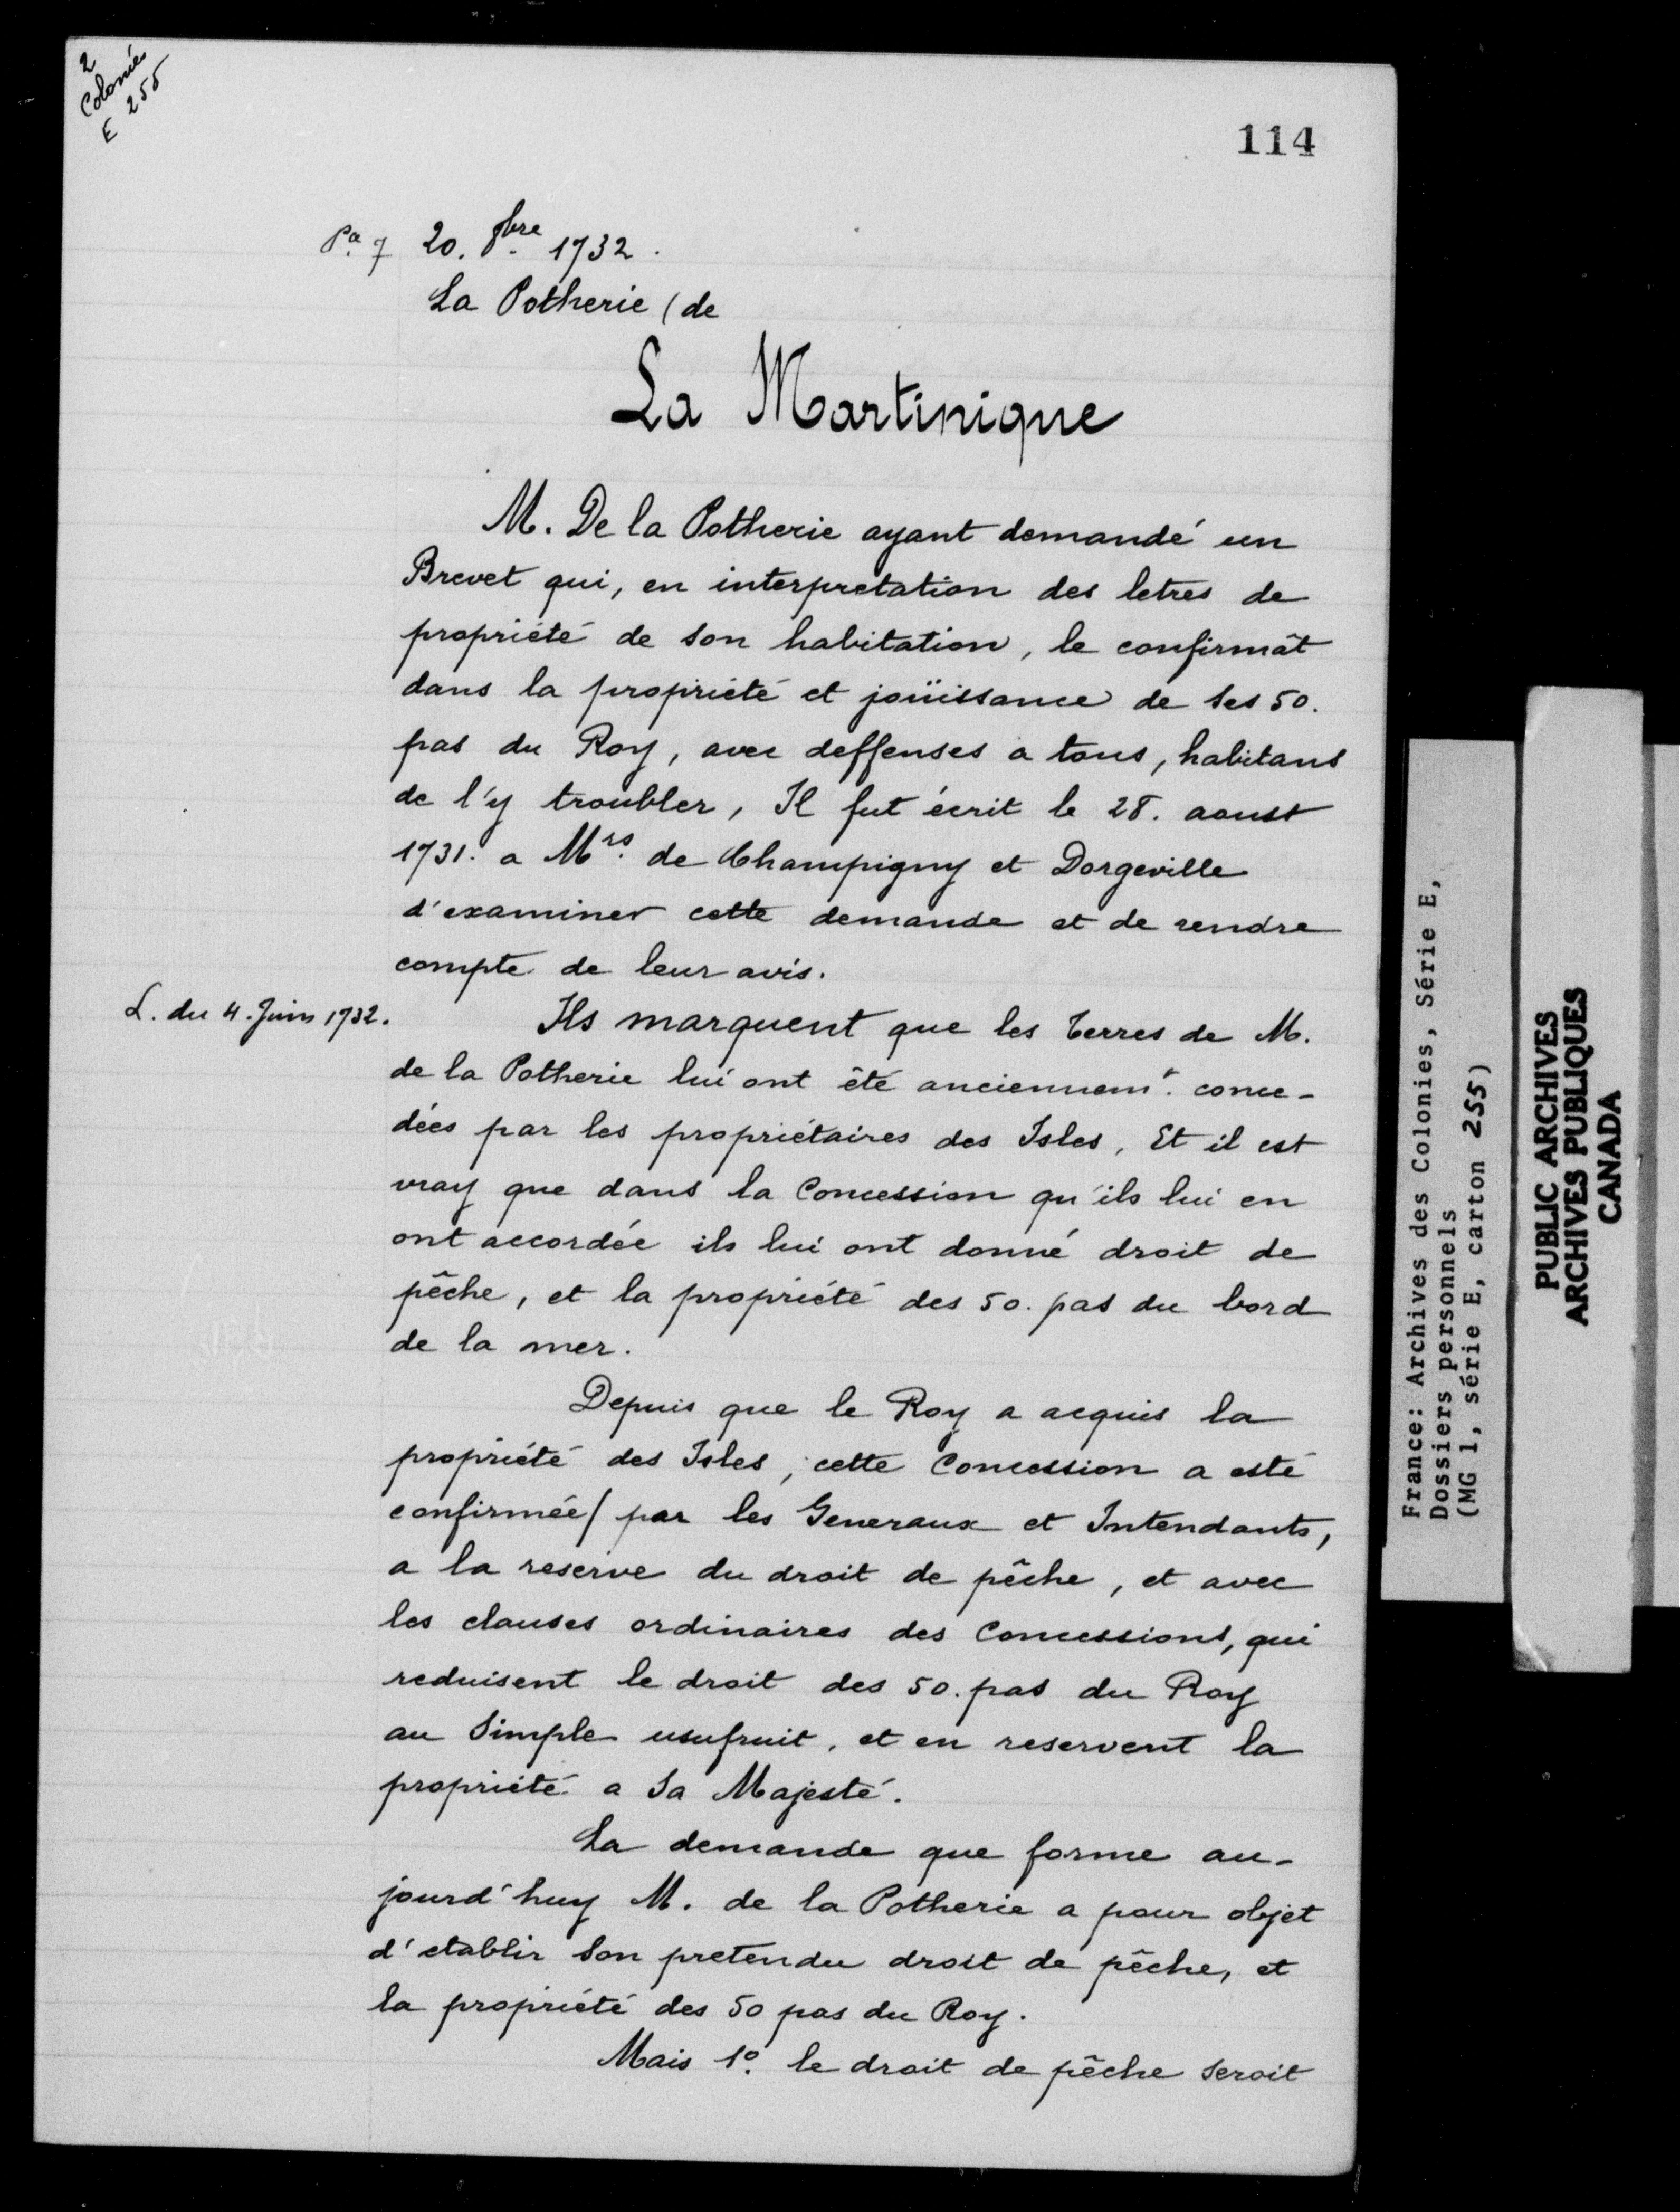 2
Colonies
E 255
114
Pa. 7 20. 8bre 1732.
La Potherie (de
La Martinique
M. De la Potherie ayant demandé un
Brevet qui, en interpretation des letres de
propriété de son habitation, le confirmât
dans la propriété et joüissance de ses 50.
pas du Roy, avec deffenses a tous, habitans
de l'y troubler, Il fut écrit le 28. aoust
1731. a Mrs. de Champigny et Dorgeville
d'examiner cette demande et de rendre
compte de leur avis.
L. du 4. Juin 1732.
Ils marquent que les terres de M.
de la Potherie lui ont été anciennemt. conce-
dées par les propriétaires des Isles, Et il est
vray que dans la Concession qu'ils lui en
ont accordée ils lui ont donné droit de
pêche, et la propriété des 50. pas du bord
de la mer.
Depuis que le Roy a acquis la
propriété des Isles, cette Concession a esté
confirmée/ par les Generaux et Intendants,
a la reserve du droit de pêche, et avec
les clauses ordinaires des Concessions, qui
reduisent le droit des 50. pas du Roy
au Simple usufruit, et en reservent la
propriété a Sa Majesté.
La demande que forme au-
jourd'huy M. de la Potherie a pour objet
d'etablir son pretendu droit de pêche, et
la propriété des 50 pas du Roy.
Mais 1º. le droit de pêche seroit
France: Archives des Colonies, Série E,
Dossiers personnels
(MG 1, série E, carton 255)
PUBLIC ARCHIVES
ARCHIVES PUBLIQUES
CANADA